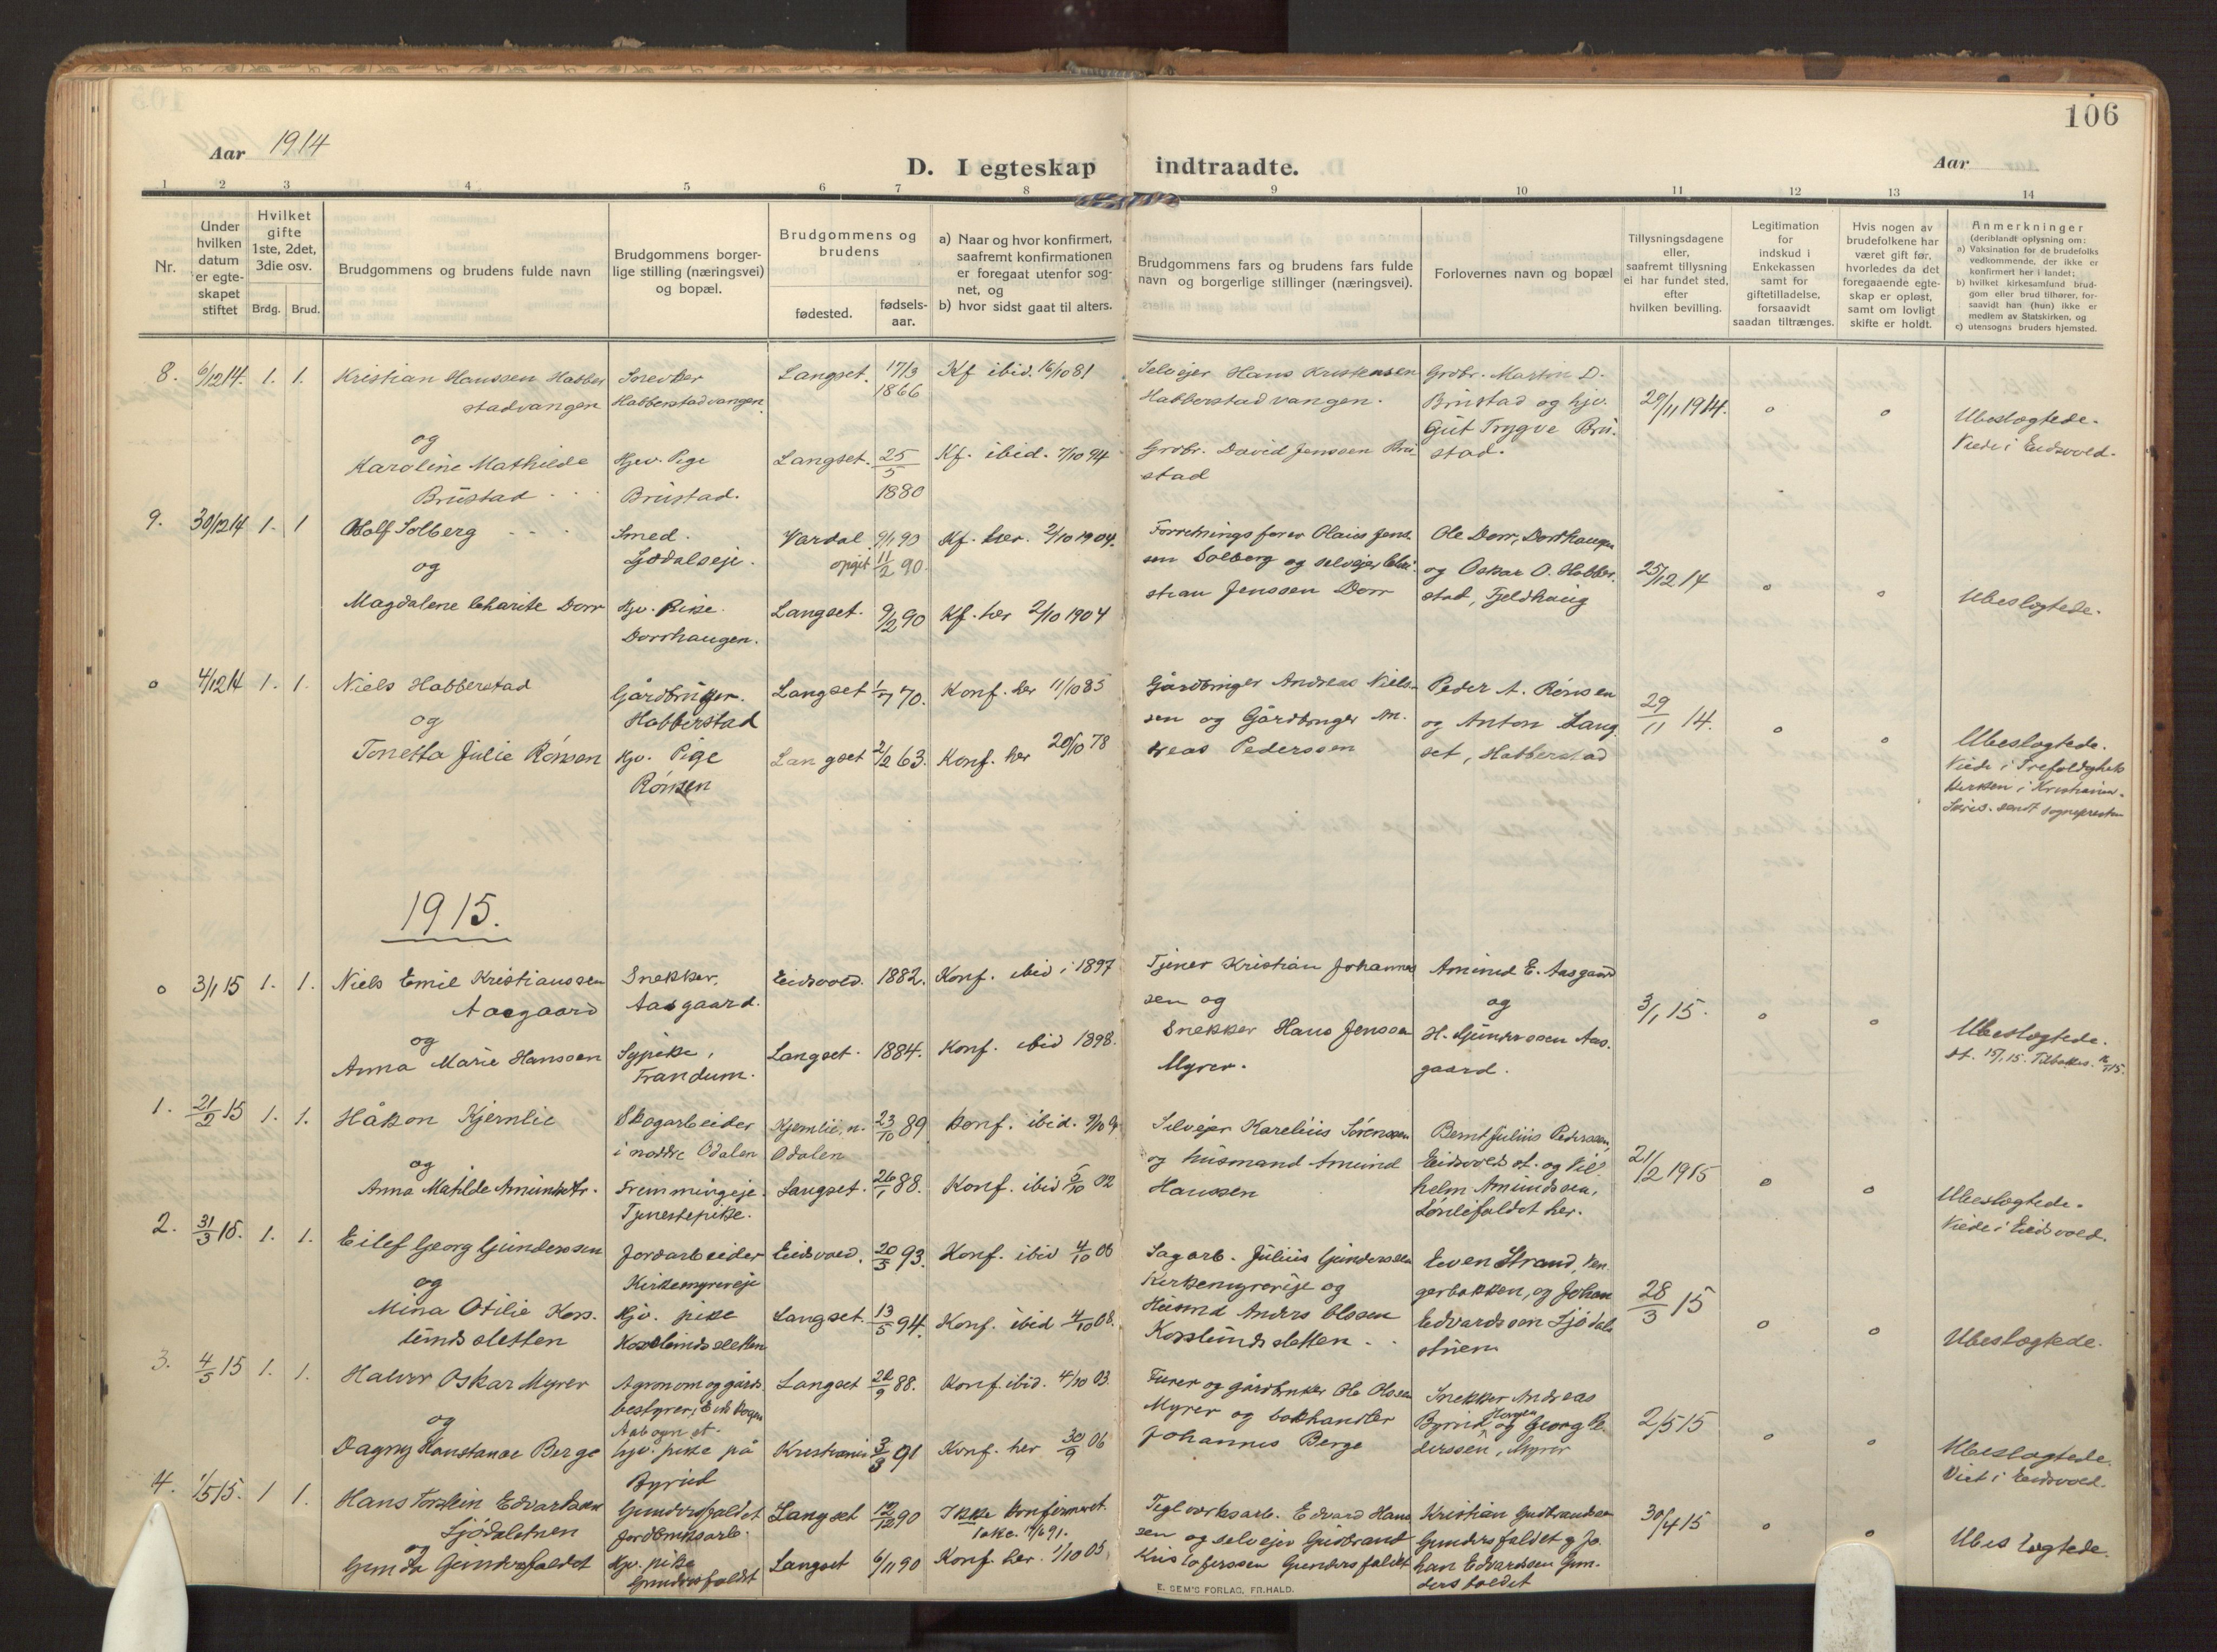 106
Aar 1914
D. I egteskap indtraadte.
Aar
1 2 3 4 5 6 7 8 9 10 11 12 13 14
Nr.
Under hvilken datum er egteskapet stiftet
Hvilket gifte 1ste, 2det, 3die osv.
Brdg. Brud.
Brudgommens og brudens fulde navn
Brudgommens borgerlige stilling (næringsvei) og bopæl.
Brudgommens og brudens
fødested.
fødselsaar.
a) Naar og hvor konfirmert, saafremt konfirmationen er foregaat utenfor sognet, og
b) hvor sidst gaat til alters.
Brudgommens fars og brudens fars fulde navn og borgerlige stillinger (næringsvei).
Forlovernes navn og bopæl
Tillysningsdagene eller, saafremt tillysning ei har fundet sted, efter hvilken bevilling.
Legitimation for indskud i Enkekassen samt for giftetilladelse, forsaavidt saadan tiltrænges.
Hvis nogen av brudefolkene har været gift før, hvorledes da det foregaaende egteskap er opløst, samt om lovligt skifte er holdt.
Anmerkninger
(deriblandt oplysning om:
a) Vaksination for de brudefolks vedkommende, der ikke er konfirmert her i landet;
b) hvilket kirkesamfund brudgom eller brud tilhører, forsaavidt han (hun) ikke er medlem av Statskirken, og
c) utensogns bruders hjemsted.
8. 6/12 14. 1. 1. Kristian Hanssen Habberstadvangen
Habberstadvangen.
Langset. 17/3 1866
Kf ibid. 16/10 81
Selveier Hans Kristensen
Habberstadvangen.
Grdbr. Martin D.
Brustad og hjv.
Gut Trygve Brustad.
29/11 1914. o o
Ubeslogtede.
Viede i Eidsvold.
og
Karoline Mathilde
Brustad
Hjev. Pige
Brustad.
Langset. 25/5 1880
Kf. ibid. 7/10 94
Grdbr. David Jenssen Brustad
9. 30/12 14 1. 1 Olaf Solberg
Smed.
Ljødalseje.
Vardal. 9/1 90
opgit 11/2 90.
Kf. her. 2/10 1904.
Forretningsfører Olaus Jenssen
Solberg og selvejer Christian
Jenssen Dorr
Ole Dorr, Dorrhaugen
og Oskar O. Habberstad, Fjeldhaug
25/12 14 o o
Ubeslogtede.
og
Magdalene Charite Dorr
Hjv. Pike.
Dorrhaugen.
Langset. 9/2 90
Kf. her 2/10 1904
o 4/12 14 1. 1. Niels Habberstad
Gårdbruger.
Habberstad
Langset 1/7 70.
Konf. her 11/10 85
Gårdbruger Andreas Nielssen
og Gårdbruger Andreas
Pederssen
Peder A. Rønsen
og Anton Langset, Habberstad
29/11 14. o o
Ubeslogtede.
Viede i Trefoldigheds
kirken i Kristiania.
og
Tonetta Julie Rønsen
Hjv. Pige
Rønsen
Langset 2/2 63.
Konf. her 20/10 78
1915.
o 3/1 15 1. 1. Niels Emil Kristianssen
Aasgaard
Snekker,
Aasgaard.
Eidsvold. 1882.
Konf. ibid i 1897
Tjener Kristian Johannessen
og
Snekker Hans Jenssen
Myrer.
Amund E. Aasgaard
og
H. Gunderssen Aasgaard.
3/1 15. o o
Ubeslogtede.
og
Anna Marie Hanssen
Sypike,
Trandum.
Langset. 1884.
Konf. ibid 1898.
1. 21/2 15 1. 1. Håkon Kjernlie
Skogarbeider
i nordre Odalen
Kjernlie, n.
Odalen
23/10 89
Konf. ibid.
Selvejer Karelius Sørenssen
og husmand Amund
Hanssen
Bernt Julius Pederssen,
Eidsvold st. og Vilhelm
Amundssen,
Lønlifaldet her.
21/2 1915 o o
Ubeslogtede.
Viede i Eidsvold.
og
Anna Matilde Amundsdtr.
Fremmingeje.
Tjenestepike.
Langset. 26/1 88.
Konf. ibid 5/10 02
2. 31/3 15. 1. 1. Eilef Georg Gunderssen
Jordarbeider
Kirkemyrereje
Eidsvold. 20/5 93.
Konf. ibid 4/10 08
Sagarb. Julius Gunderssen
Kirkemyrereje og
Husmd Anders Olssen
Korslundssletten
Even Strand, Vengerbakken,
og Johan
Edvardssen Ljødalstuen
28/3 15 o o
Ubeslogtede.
og
Mina Otilie Korslundssletten
Hjv. pike
Korslundssletten
Langset. 13/5 94.
Konf. ibid 4/10 08.
3. 4/5 15 1. 1. Halvor Oskar Myrer
Agronom og gårdsbestyrer,
Langset 22/9 88.
Konf. ibid. 4/10 03.
Furer og gårdbruker Ole Olssen
Myrer og bokhandler
Johannes Berge
Snekker Andreas
Byrud og Georg Pederssen, Myrer
2/5 15 o o
Ubeslogtede.
Viet i Eidsvold.
og
Dagny Konstance Berge
hjv. pike på
Byrud
Kristiania 3/3 91
Konf. her 30/9 06
4. 1/5 15. 1 1. Hans Torstein Edvardssen
Ljødalstuen
Gundersfaldet
Jordbruksarb.
Langset 12/12 90
Ikke konfirmeret.
Teglverksarb. Edvard Hanssen
og selvejer Gudbrand
Kristoferssen Gundersfaldet
Kristian Gudbrandssen
Gundersfaldet og Johan
Edvardssen Gundersfaldet
30/4 15 o o
Ubeslogtede.
og
Gunda Gundersfaldet
Hjv. pike
Gundersfaldet
Langset 6/11 90
Konf. her. 1/10 05.
E. SEM'S FORLAG, FR.HALD.